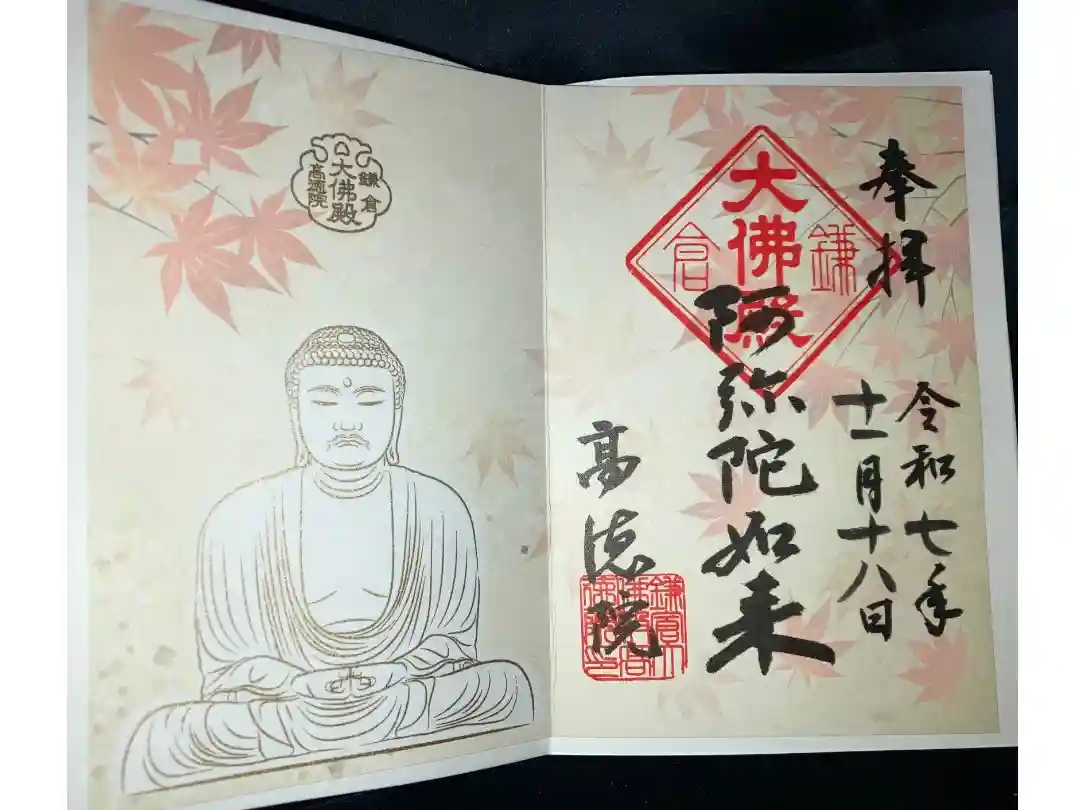 鎌倉
大佛殿
高徳院
奉拝
令和七年
十一月十八日
鎌倉
大佛殿
阿弥陀如来
高徳院